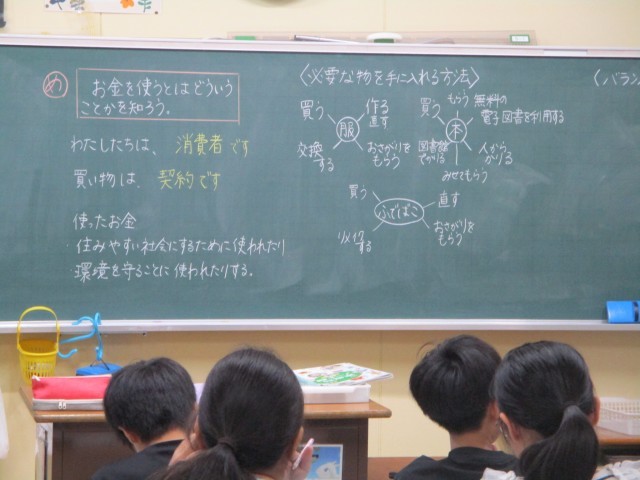 め
お金を使うとはどういう
ことかを知ろう。
わたしたちは、消費者です
買い物は、契約です
使ったお金
・住みやすい社会にするために使われたり
環境を守ることに使われたりする。
〈必要な物を手に入れる方法〉
買う
作る
直す
服
交換
する
おさがりを
もらう
買う
もらう
無料の
電子図書を利用する
本
図書館
でかりる
人から
かりる
みせてもらう
買う
直す
ふでばこ
リメイク
する
おさがりを
もらう
〈バラン